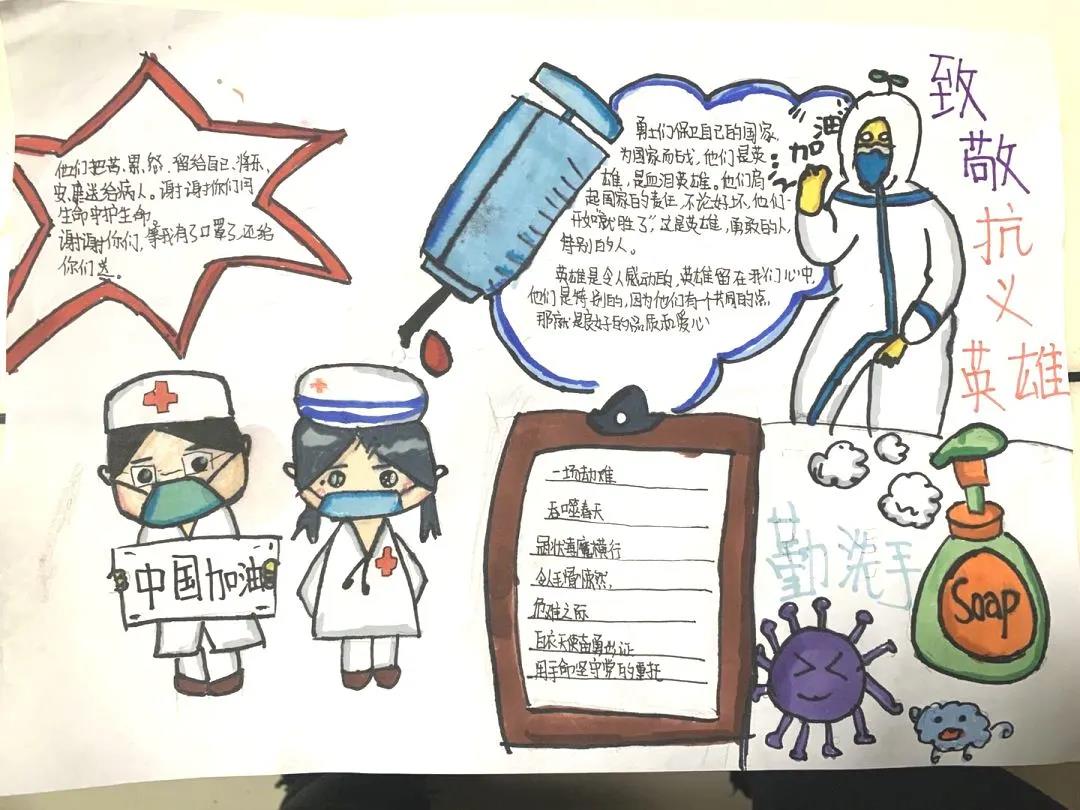 他们把苦、累、愁、留给自己、将乐、
安康送给病人。谢谢你们用
生命守护生命。
谢谢你们，等我有了口罩了，还给
你们送。
勇士们保卫自己的国家,
为国家而战，他们是英
雄，是血泪英雄。他们肩
起国家的责任,不论好坏,他们一
开如"就胜了"，这是英雄，勇敢的人,
特别的人。
英雄是令人感动的,英雄留在我们心中,
他们是特别的,因为他们有一个共同的点,
那就是良好的品质和爱心
加油
致敬抗义英雄
中国加油
一场劫难
吞噬春天
冠状毒魔横行
危难之际
白衣天使奋勇出证
用手命坚守党的重托
勤洗手
Soap